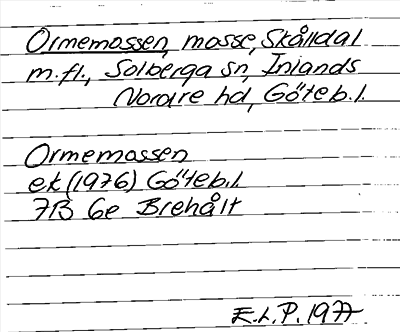 Ormemossen, mosse, Skålldal
m.fl., Solberga sn, Inlands
Nordre hd, Göteb.l.
Ormemossen
ek (1976) Göteb.l.
7B 6e Brehålt
E.L.P. 1977